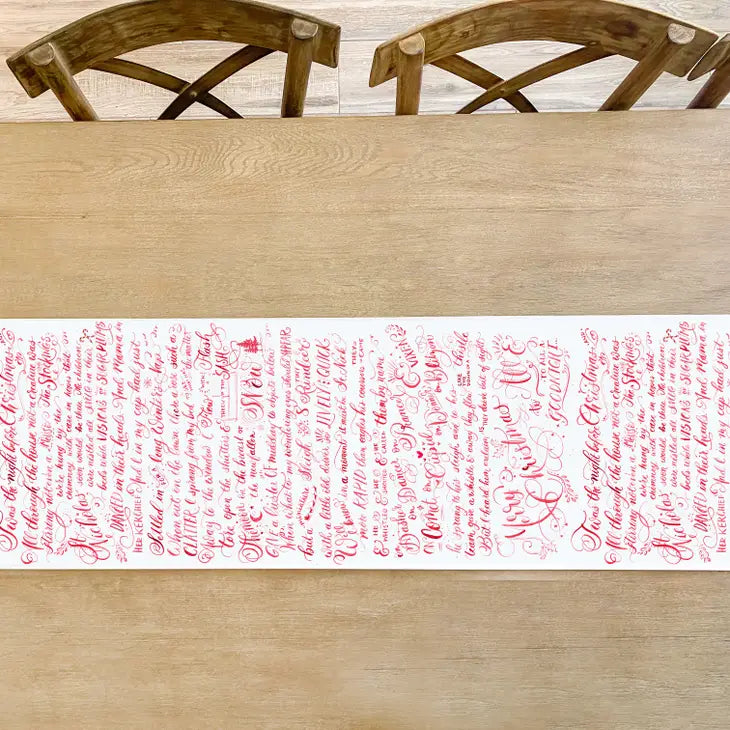 Twas the night before Christmas
All through the house not a creature was
Stirring not even a Mouse The Stockings
were hung by the
chimney with care in hopes that
Nicholas
soon would be there the children
were nestled all SNUG in their
beds while VISIONS OF SUGARPLUMS
DANCED in their heads. And Mama in
HER KERCHIEF And I in my cap had just
Settled in Long Winter's nap
When out on the lawn such a
CLATTER I sprang from my bed the matter
Away to the window I Flew Flash
tore open the shutters & threw up the SASH
Moon on the breast of the new fallen Snow
a lustre of midday to objects below
When what to my wondering eyes should APPEAR
but a miniature Sleigh & 8 Reindeer
with a little old driver so LIVELY & QUICK
We knew in a moment it must be St. Nick
more RAPID than eagles his coursers THEY CAME
& HE WHISTLED & SHOUTED & CALLED them by name
Dasher & Dancer
Comet & Cupid & Donner & Blitzen
he sprang to his sleigh, and to his
team, gave a whistle & away they flew LIKE THE DOWN OF A thistle
But I heard him exclaim drove out of sight
Merry Christmas to All
& to ALL A GOODNIGHT
Twas the night before Christmas
All through the house not a creature was
Stirring not even a Mouse The Stockings
were hung by the
chimney with care in hopes that
Nicholas
soon would be there the children
were nestled all SNUG in their
beds while VISIONS OF SUGARPLUMS
DANCED in their heads. And Mama in
HER KERCHIEF And I in my cap had just